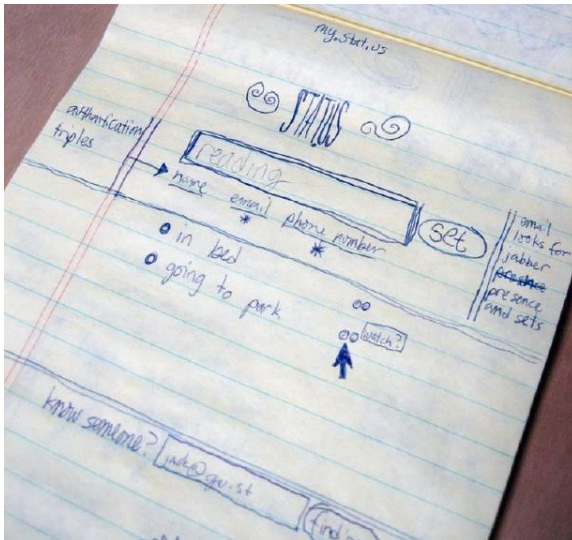 my.stat.us
STATUS
authentication
triples
reading
name email phone number
set
email
looks for
jabber
presence
presence
and sets
in bed
going to park
watch?
know someone?
jack@gu.st
find